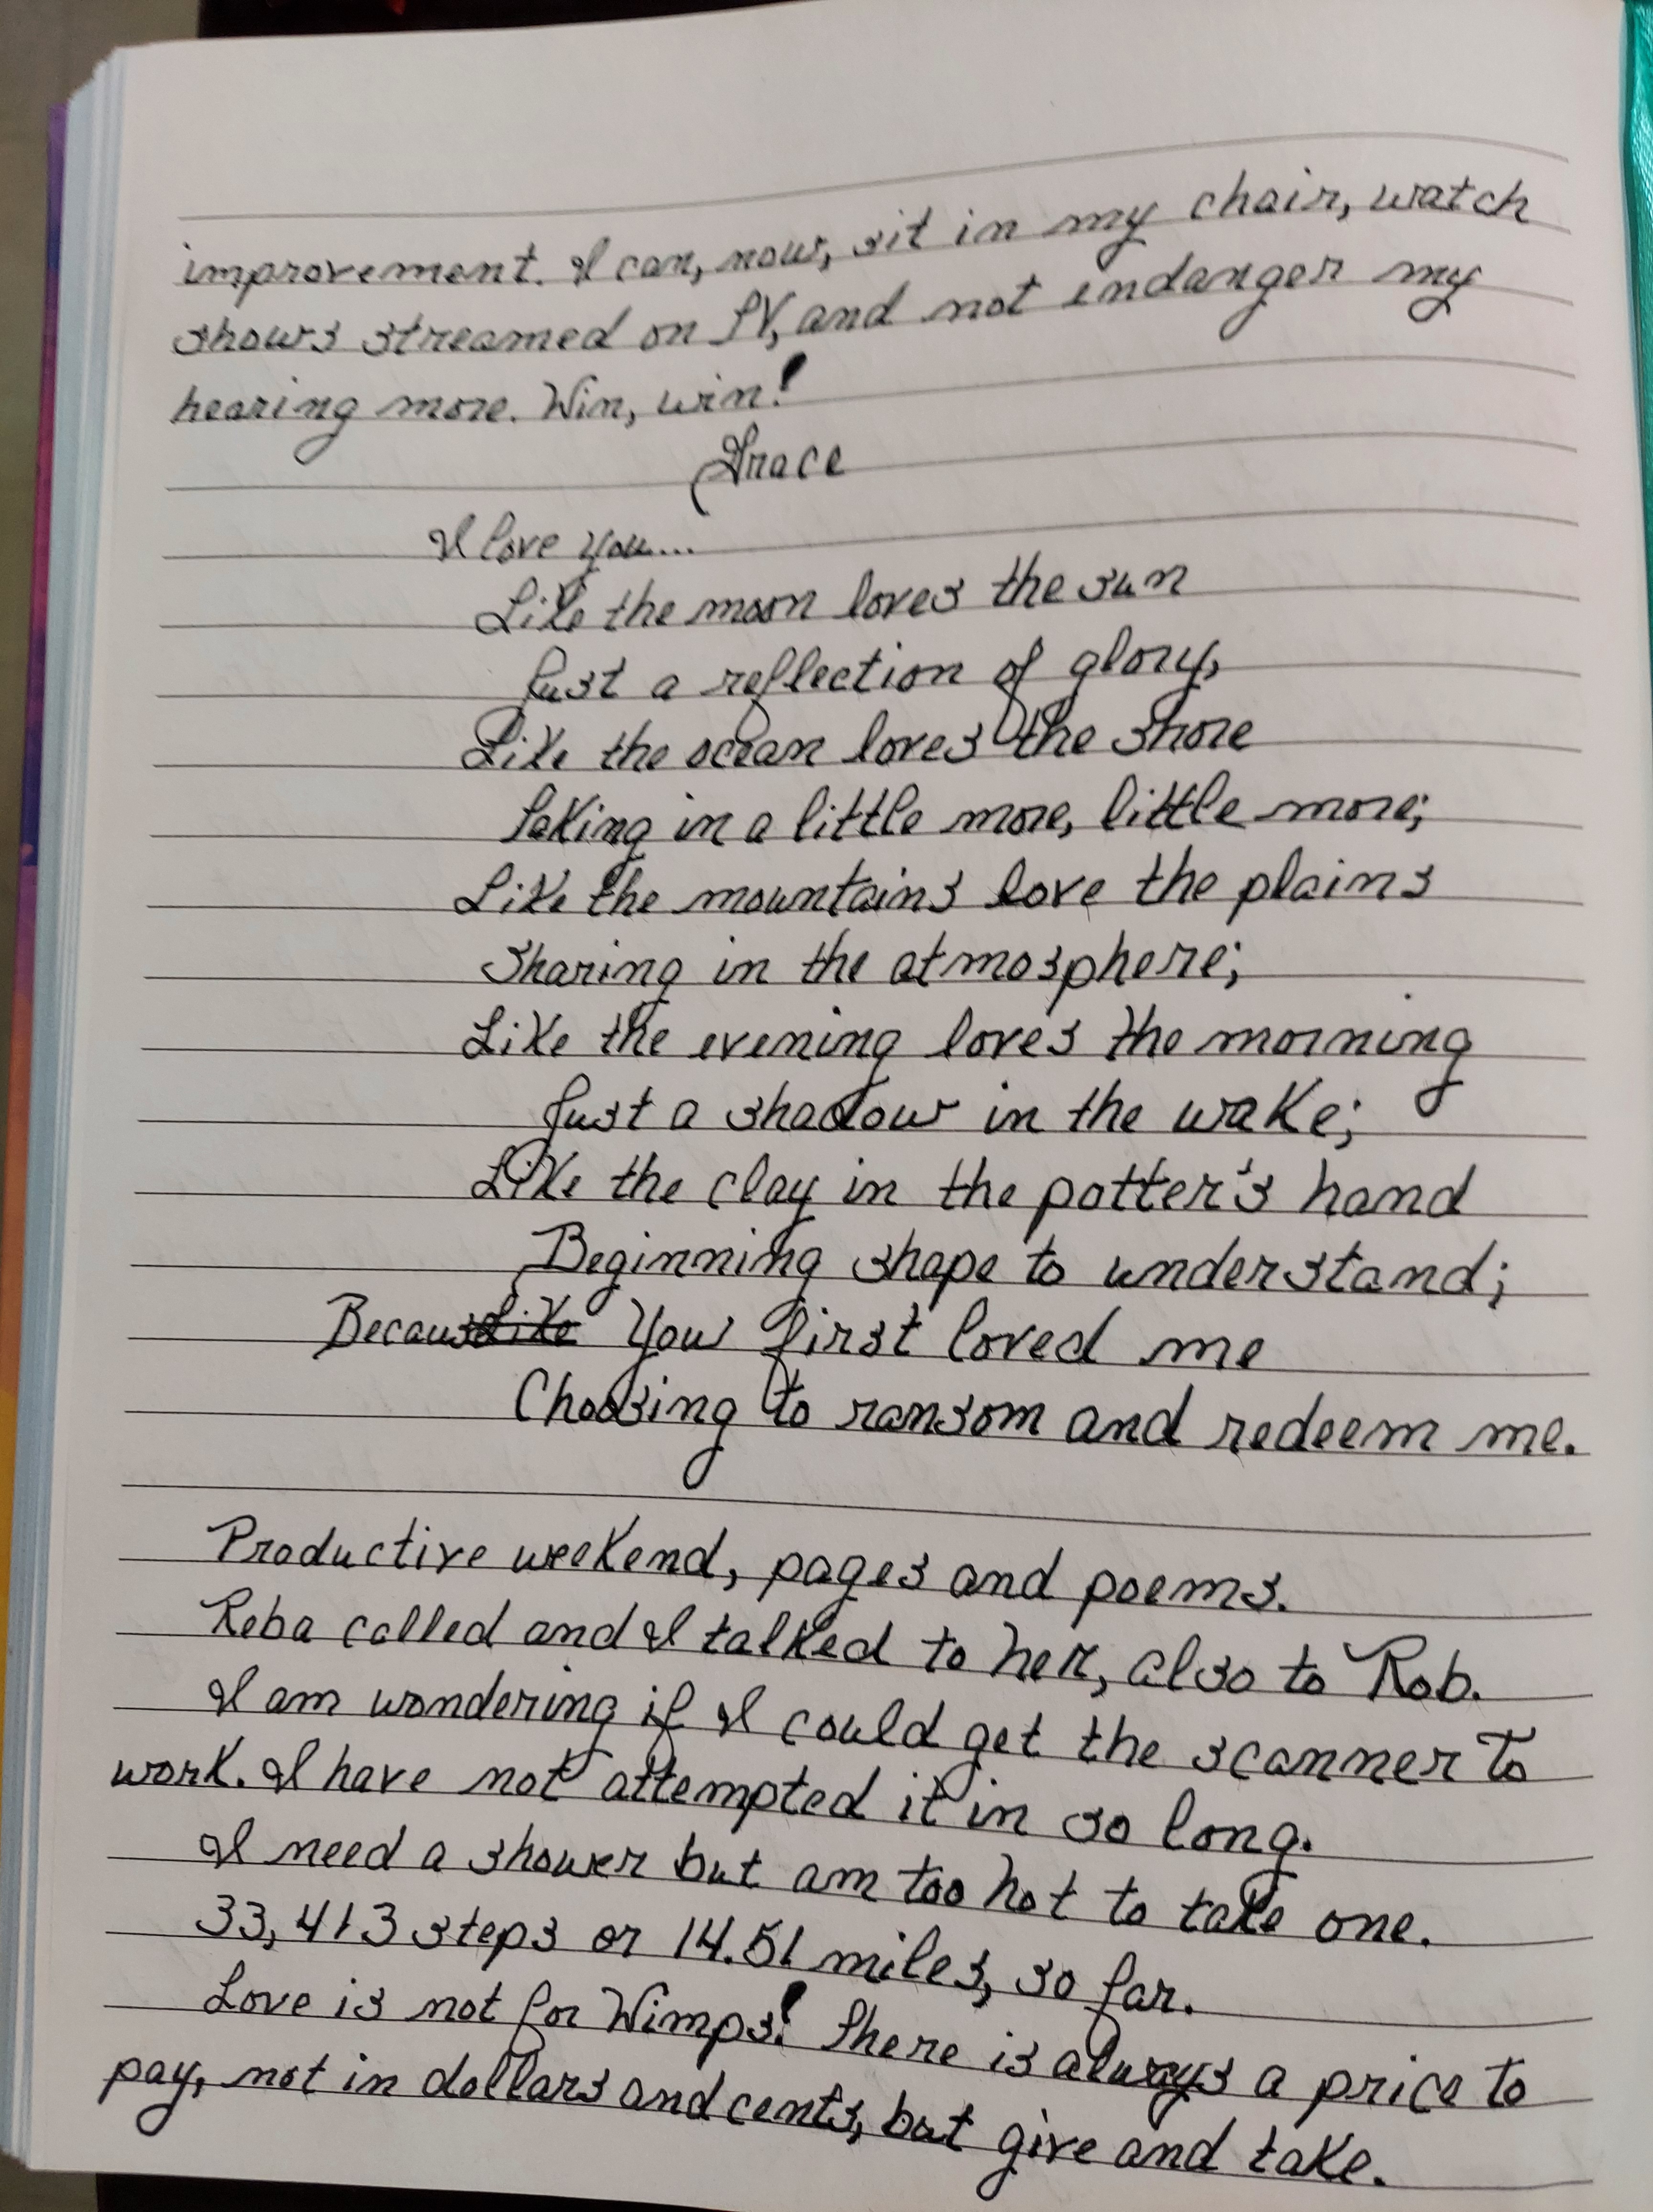 improvement. I can, now, sit in my chair, watch
shows streamed on TV, and not endanger my
hearing more. Win, win!
Grace
I love You....
Like the moon loves the sun
Just a reflection of glory,
Like the ocean loves the shore
Taking in a little more, little more;
Like the mountains love the plains
Sharing in the atmosphere;
Like the evening loves the morning
Just a shadow in the wake;
Like the clay in the potter's hand
Beginning shape to understand;
Because You first loved me
Choosing to ransom and redeem me.
Productive weekend, pages and poems.
Reba called and I talked to her, also to Rob.
I am wondering if I could get the scanner to
work. I have not attempted it in so long.
I need a shower but am too hot to take one.
33,413 steps or 14.51 miles, so far.
Love is not for Wimps! There is always a price to
pay, not in dollars and cents, but give and take.